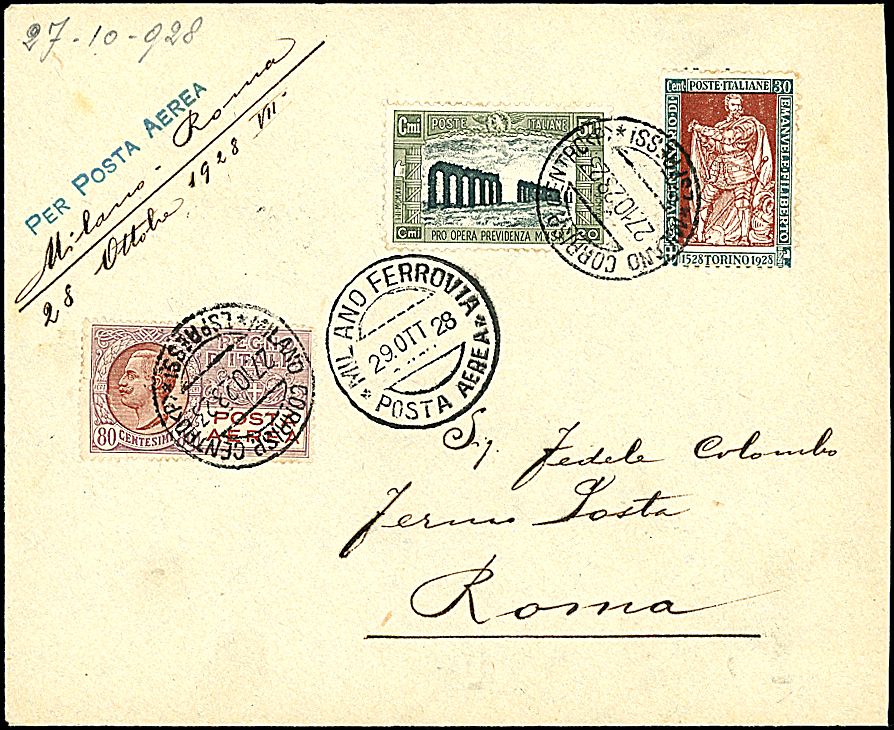 27-10-928
PER POSTA AEREA
Milano - Roma
28 Ottobre 1928 VII.
Cmi POSTE ITALIANE
PRO OPERA PREVIDENZA M.
Cmi 20
Cent. POSTE·ITALIANE 30
EMANVELE·FILIBERTO
1528 TORINO 1928
MILANO CORRISP. CENTRO (ESPRESSI)
27.10.28
MILANO FERROVIA
29.OTT 28
POSTA AEREA
REGNO D'ITALIA
80 CENTESIMI
POSTA
AEREA
MILANO CORRISP. CENTRO (ESPRESSI)
27.10.28
Sig. Fedele Colombo
Fermo Posta
Roma